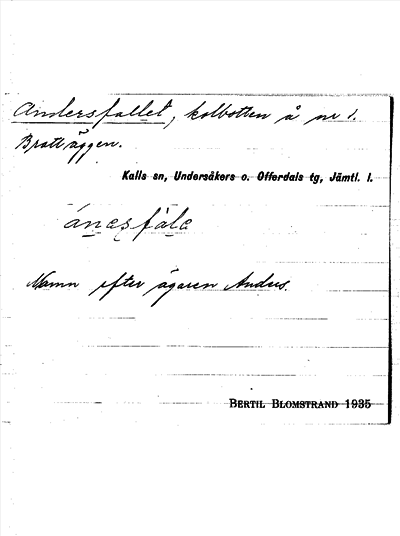 Andersfallet, kolbotten å nr 1.
Brattäggen.
Kalls sn, Undersåkers o. Offerdals tg, Jämtl. l.
ánesfàlе
Namn efter ägaren Anders.
BERTIL BLOMSTRAND 1935